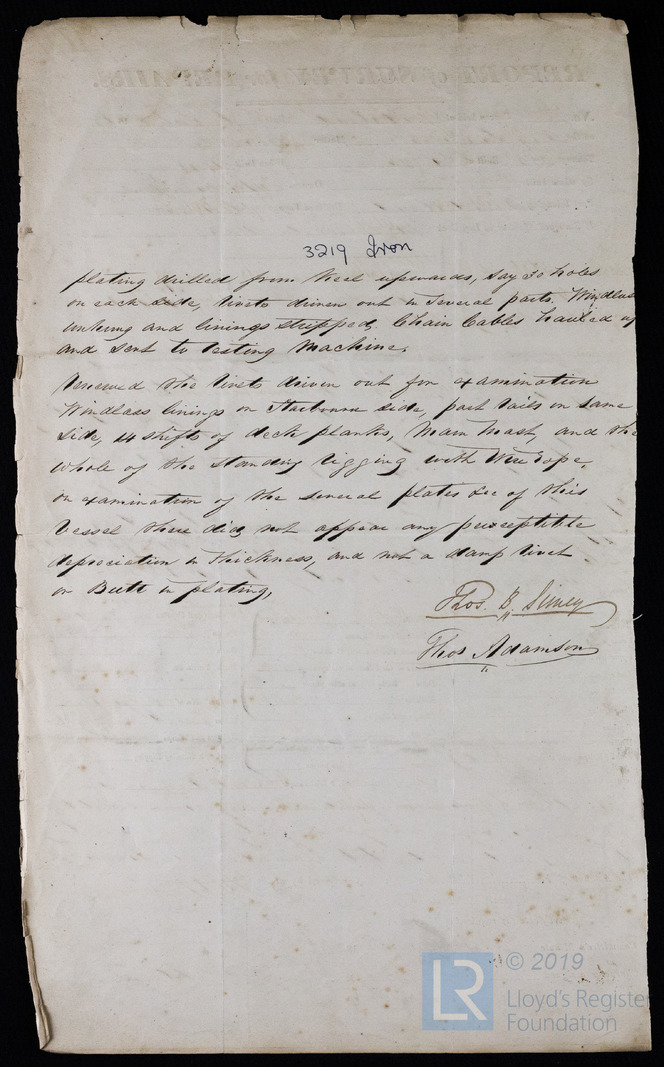 3219 Iron
plating drilled from Keel upwards, say 30 holes
on each side, rivets driven out in several parts. Windlass
unhung and linings stripped. Chain Cables hauled up
and sent to testing Machine.
Renewed the rivets driven out for examination
Windlass linings on Starboard side, part rails on same
side, 14 shifts of deck planks, Main Mast, and the
whole of the standing rigging with Wire rope,
on examination of the several plates &c of this
Vessel there did not appear any perceptible
depreciation in thickness, and not a damp rivet
or Butt in plating,
Thos. B. Simey
Thos Adamson
LR
© 2019
Lloyd's Register
Foundation